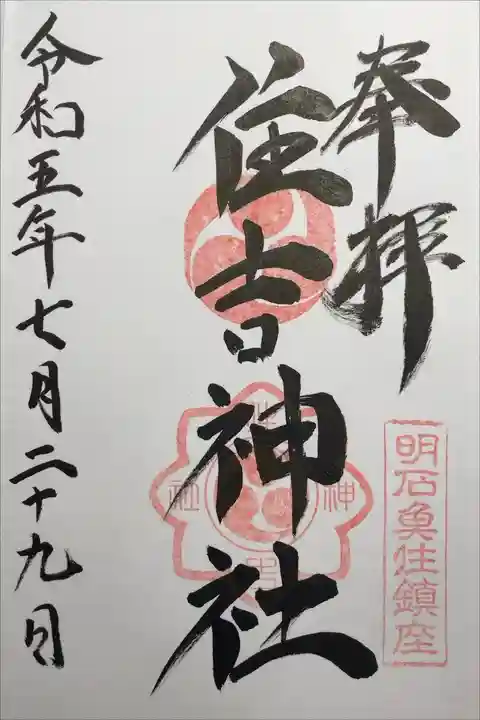 奉拝
住吉神社
明石魚住鎮座
令和五年七月二十九日
住吉神社